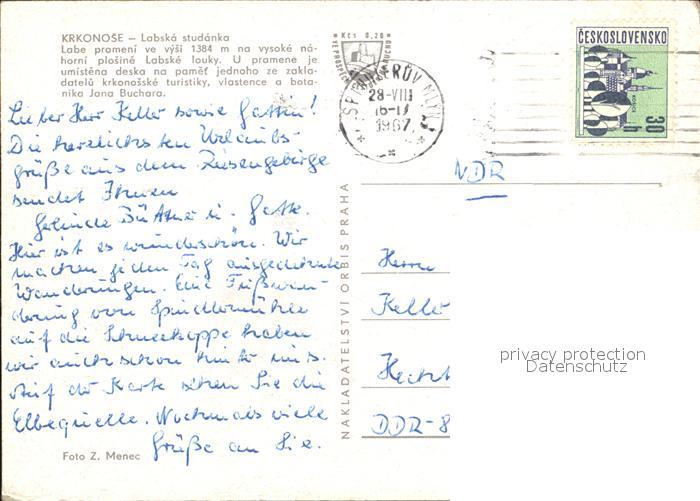 KRKONOŠE – Labská studánka
Labe pramení ve výši 1384 m na vysoké ná-
horní plošině Labské louky. U pramene je
umístěna deska na paměť jednoho ze zakla-
datelů krkonošské turistiky, vlastence a bota-
nika Jana Buchara.
Lieber Herr Keller sowie Gattin!
Die herzlichsten Urlaubs-
grüße aus dem Riesengebirge
sendet Ihnen
Gelinde Büttner u. Gatte.
Hier ist es wunderschön. Wir
machen jeden Tag ausgedehnte
Wanderungen. Eine Fußwan-
derung von Spindlermühle
auf die Schneekoppe haben
wir auch schon hinter uns.
Auf der Karte sehen Sie die
Elbequelle. Nochmals viele
Grüße an Sie.
Foto Z. Menec
NAKLADATELSTVÍ ORBIS PRAHA
Kčs 0,20
ŠPINDLERŮV MLÝN
28-VIII
1967
ČESKOSLOVENSKO
30 h
NDR
Herrn
Keller
DDR-8
privacy protection
Datenschutz